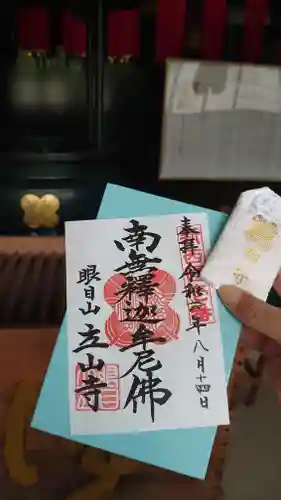 奉拝
令和二年八月十四日
南無釋迦牟尼佛
眼目山
立山寺
守